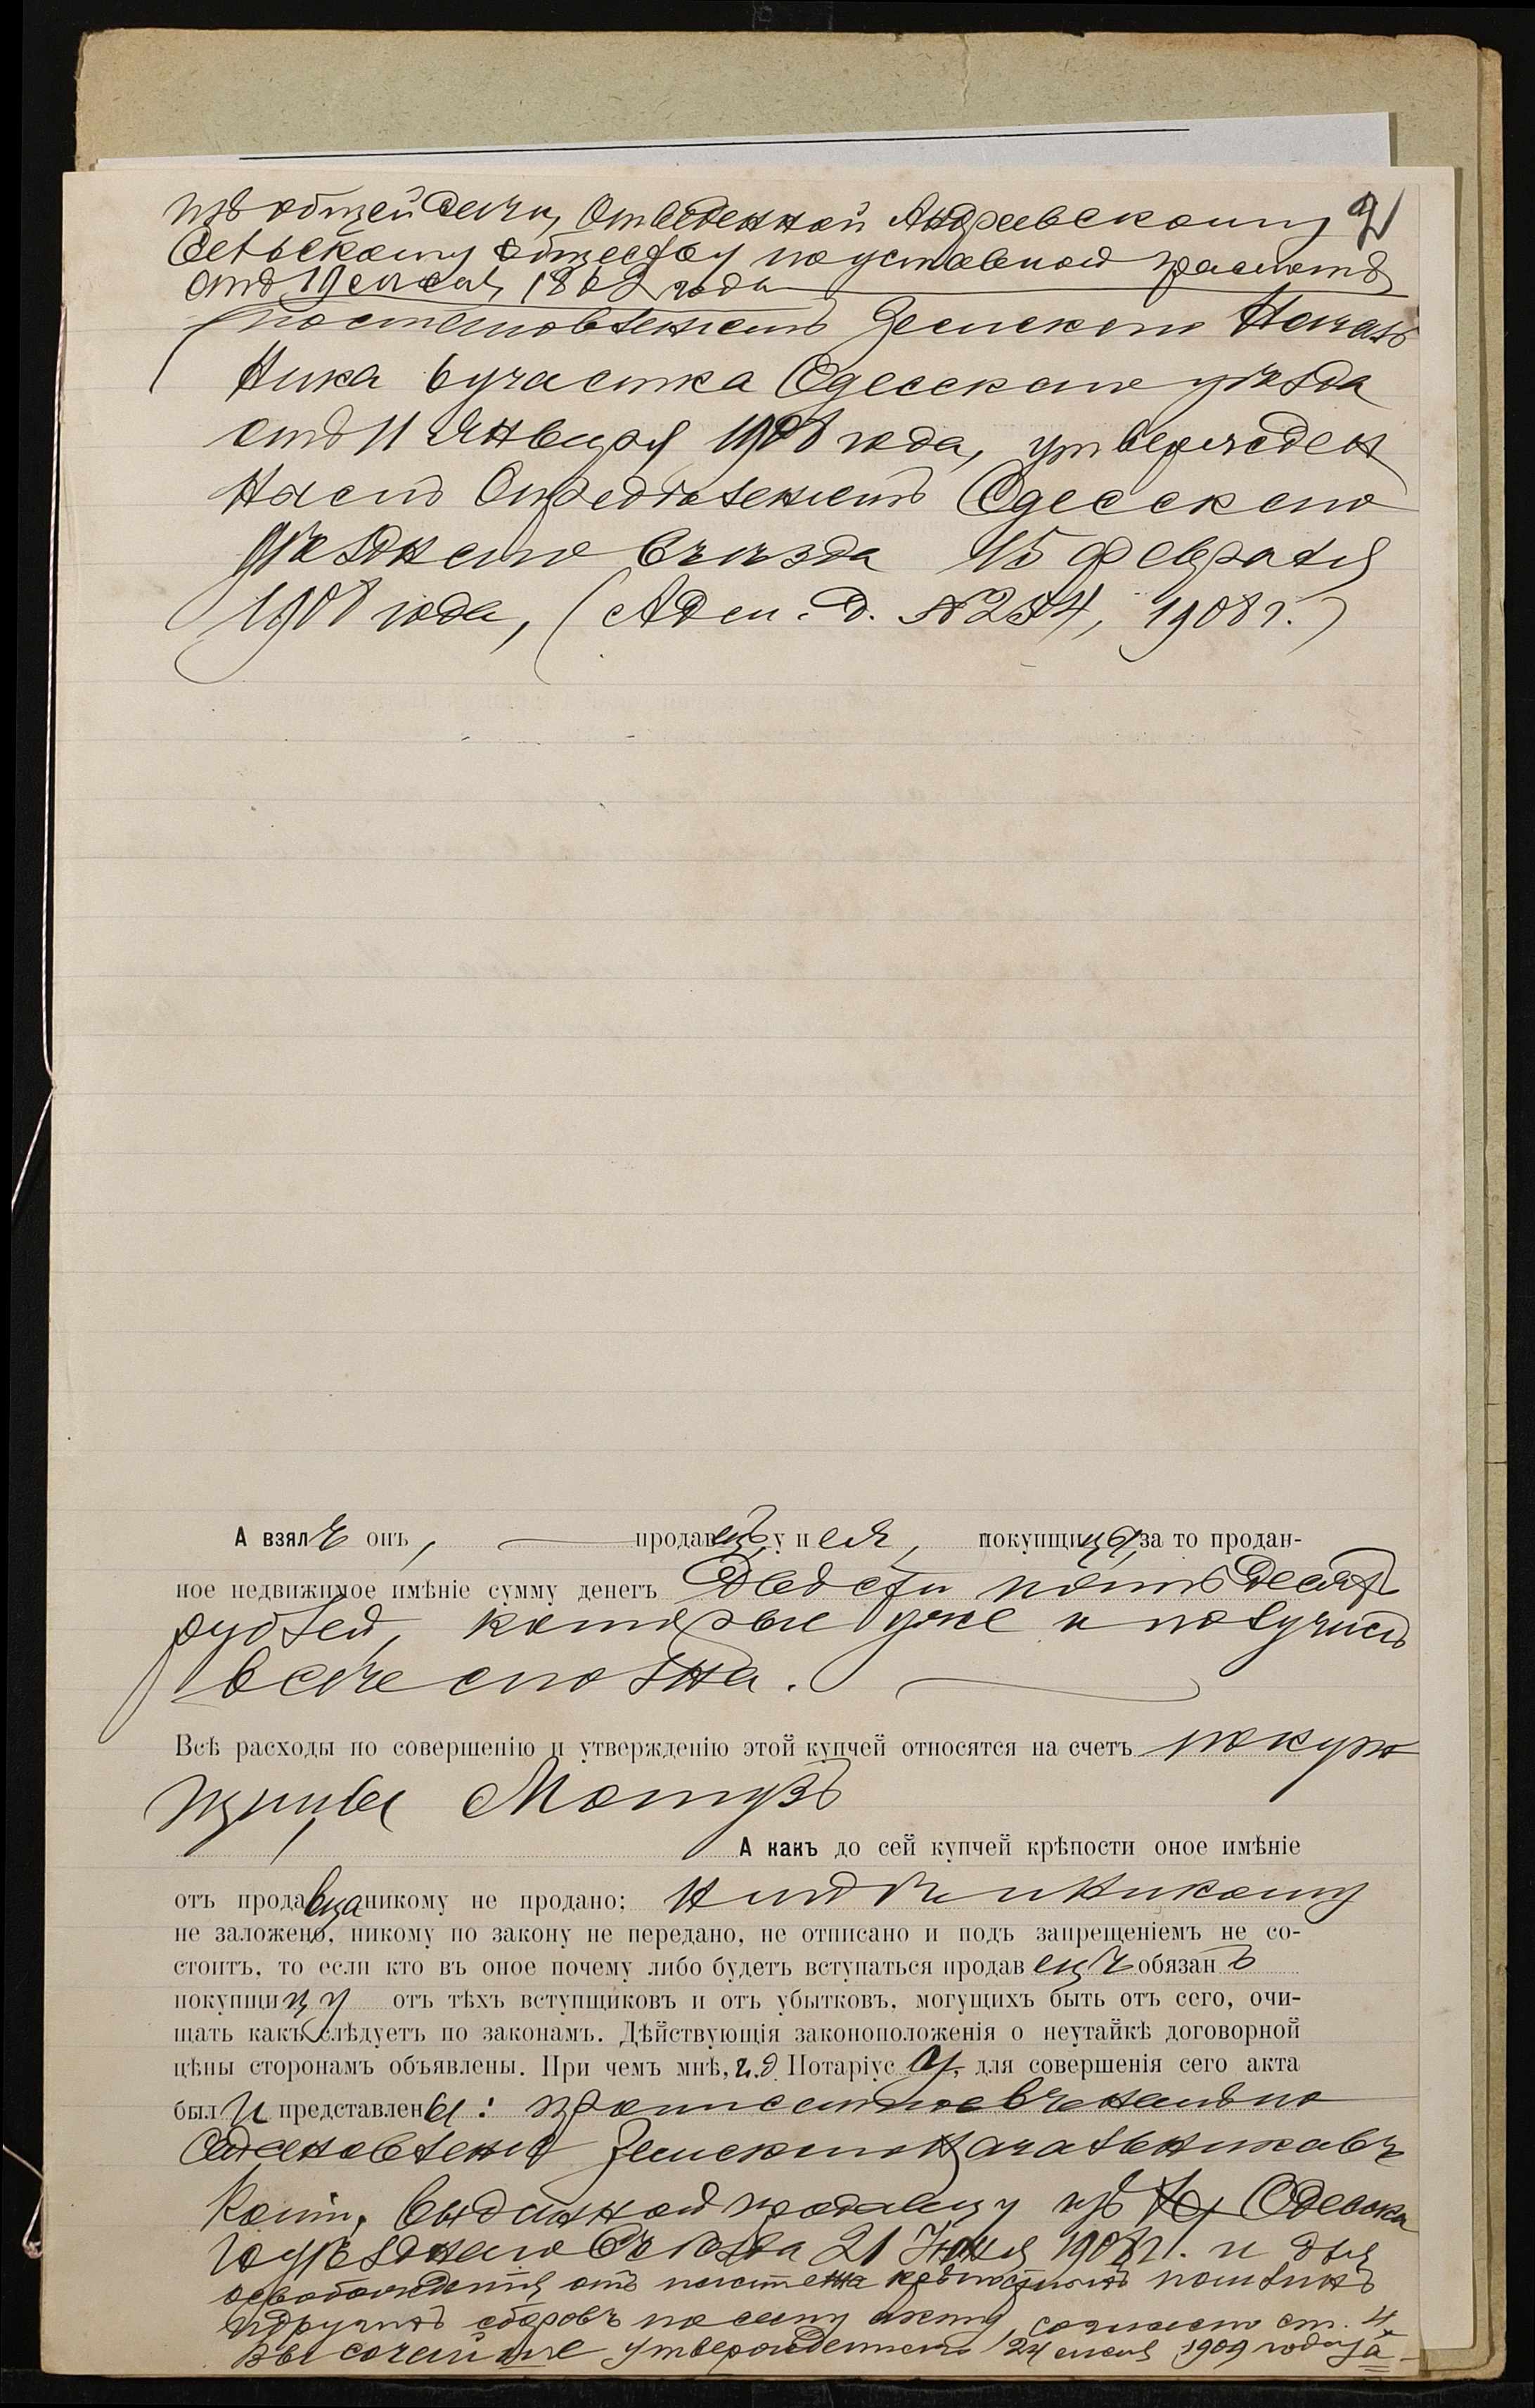 изъ общей дачи, Отведенной Андреевскому
Сельскому обществу по уставной грамотѣ
отъ 19 мая 1862 года
постановленіемъ Земскаго Началь
ника 6 участка Одесскаго уѣзда
отъ 11 Января 1908 года, утвержден
нымъ Опредѣленіемъ Одесскаго
Уѣзднаго Съѣзда 15 февраля
1908 года, (Адм. д. № 254, 1908 г.)
А взялъ онъ, продавецъ, у нея, покупщицы, за то продан-
ное недвижимое имѣніе сумму денегъ Двѣсти пятьдесят
рублей, которые уже и получилъ
всѣ сполна.
Всѣ расходы по совершенію и утвержденію этой купчей относятся на счетъ покуп
щицы Мотузъ
А какъ до сей купчей крѣпости оное имѣніе
отъ продавца никому не продано; нигдѣ и никому
не заложено, никому по закону не передано, не отписано и подъ запрещеніемъ не со-
стоитъ, то если кто въ оное почему либо будетъ вступаться продавецъ обязанъ
покупщицу отъ тѣхъ вступщиковъ и отъ убытковъ, могущихъ быть отъ сего, очи-
щать какъ слѣдуетъ по законамъ. Дѣйствующія законоположенія о неутайкѣ договорной
цѣны сторонамъ объявлены. При чемъ мнѣ, и.д. Нотаріуса, для совершенія сего акта
были представлены: по
Земскаго Начальника въ
Копіи, выданной продавцу изъ Одесска
го уѣзднаго Съѣзда 21 Іюня 1908 г. и для
освобожденія отъ платежа крѣпостныхъ пошлинъ
и другихъ сборовъ по сему акту, согласно ст. 4
Высочайше утвержденнаго 24 мая 1909 года